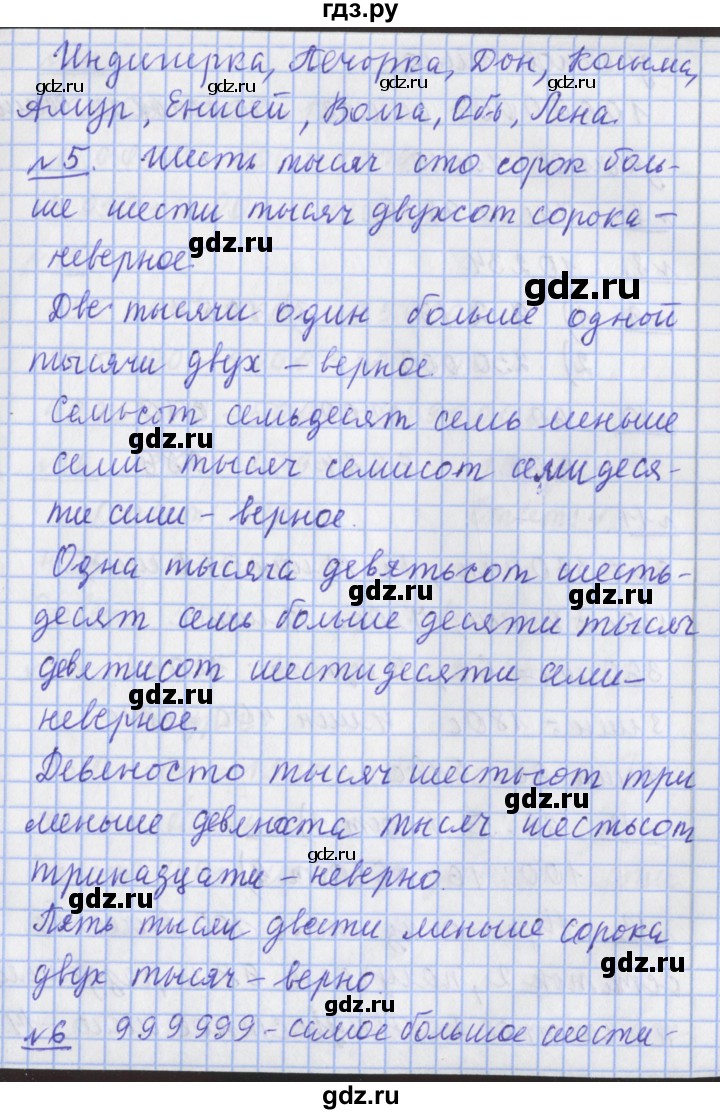 гдз.ру
Индигирка, Печорка, Дон, Колыма,
gdz.ru gdz.ru gdz.ru gdz.ru
Амур, Енисей, Волга, Обь, Лена.
gdz.ru gdz.ru gdz.ru gdz.ru
№5. Шесть тысяч сто сорок боль-
ше шести тысяч двухсот сорока –
gdz.ru
неверное.
gdz.ru
Две тысячи один больше одной
тысячи двух – верное.
Семьсот семьдесят семь меньше
gdz.ru
семи тысяч семисот семидеся-
ти семи – верное.
Одна тысяча девятьсот шесть-
gdz.ru gdz.ru
десят семь больше десяти тысяч
девятисот шестидесяти семи –
gdz.ru
неверное.
Девяносто тысяч шестьсот три
gdz.ru
меньше девяноста тысяч шестьсот
gdz.ru
триназцати – неверно.
gdz.ru
Пять тысяч двести меньше сорока
двух тысяч – верно.
gdz.ru
№6 999999 – самое большое шести -
gdz.ru gdz.ru
gdz.ru